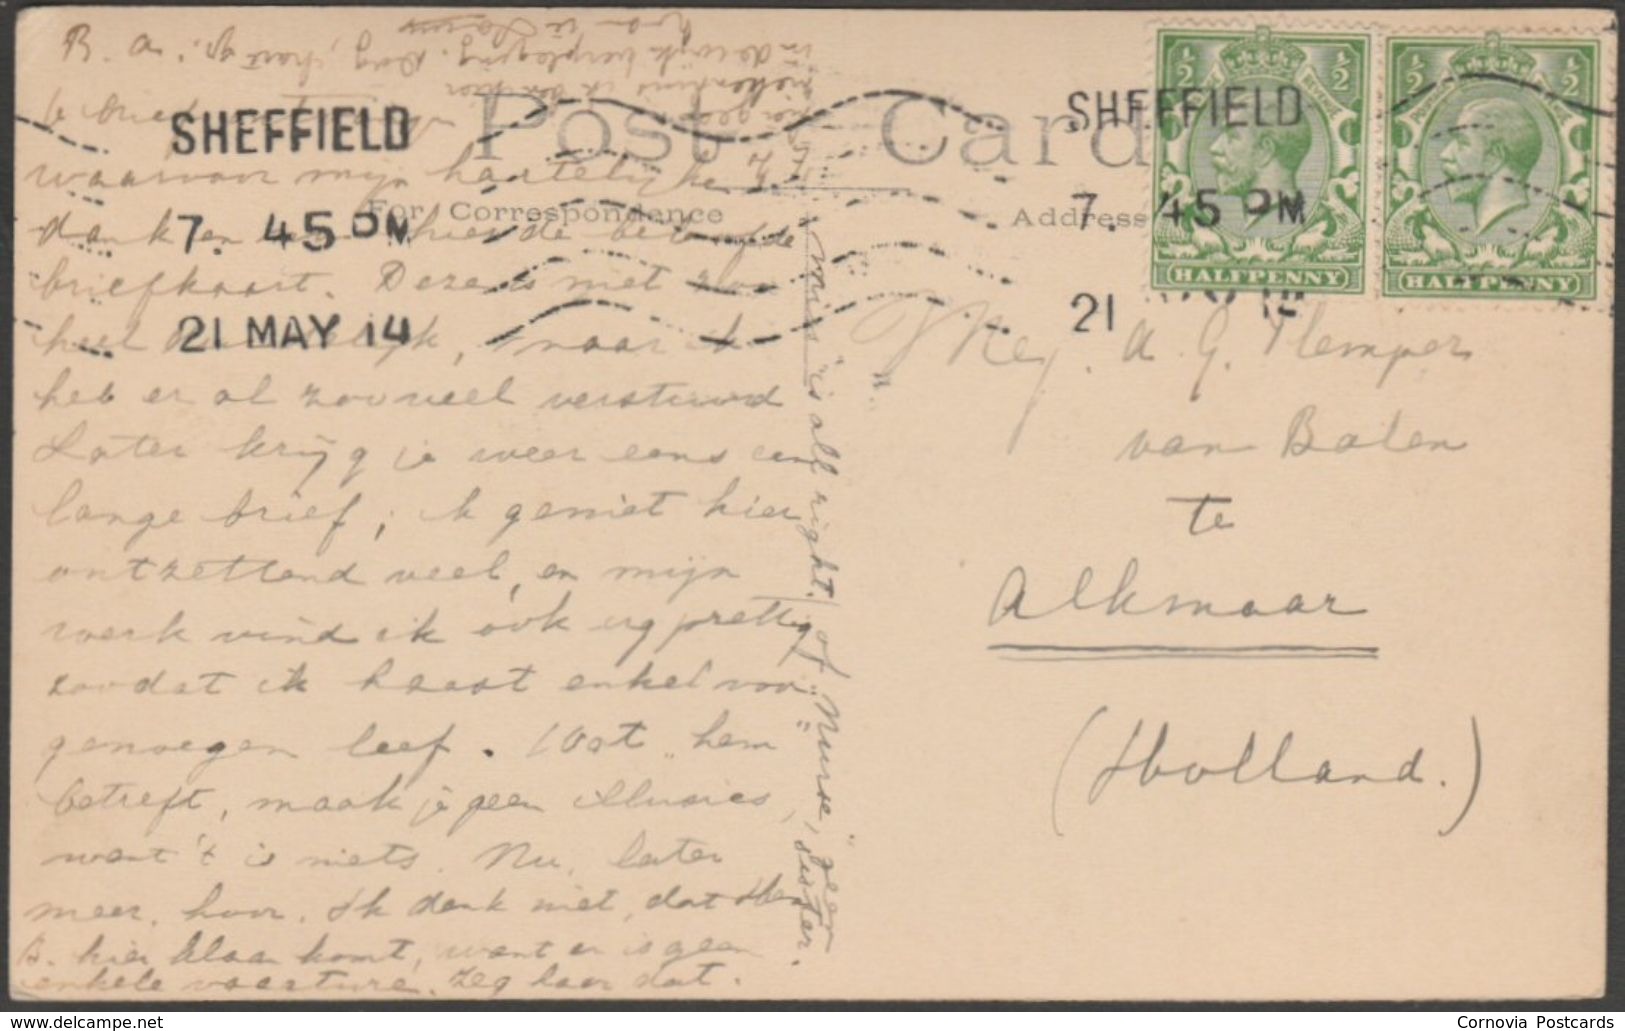 B. a.
SHEFFIELD
7. 45 PM
21 MAY 14
Post Card
For Correspondence
Address
SHEFFIELD
7. 45 PM
21
HALFPENNY
HALFPENNY
waarvan mijn hartelijke
dank en hierde beloofde
briefkaart. Deze is niet zoo
heel, maar ik
heb er al zooveel verstuurd
Later krijg je weer eens een
lange brief; ik geniet hier
ontzettend veel, en mijn
werk vind ik óók erg prettig
zoodat ik haast enkel voor
genoegen leef. Wat "hem
betreft, maak je geen illusies,
want 't is niets. Nu, later
meer, hoor. Ik denk niet, dat
B. hier klaar komt, want er is geen
enkele vacature. Zeg haar dat.
"miss" is all right. of "Nurse," geen
sister.
Mej. A. G. Kemper
van Balen
te
Alkmaar
(Holland.)
Cornovia Postcards